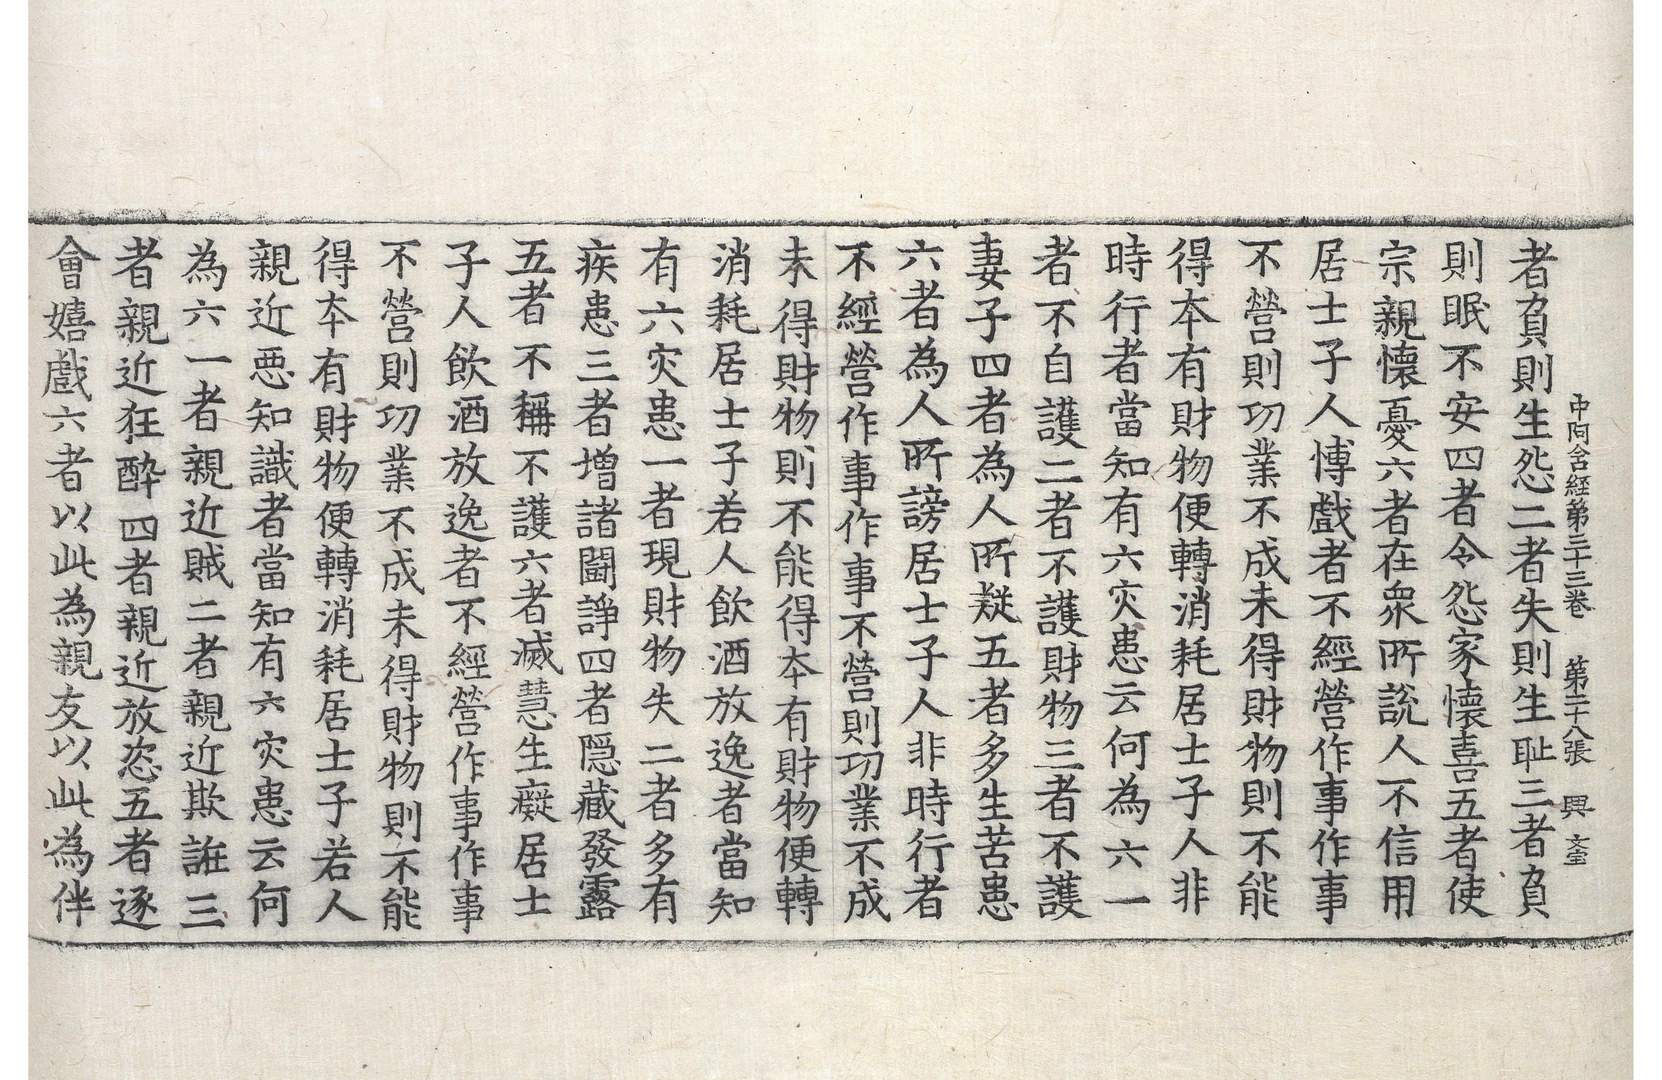 中阿含経第三十三巻 第二十八張 興 文宝
者負則生怨二者失則生耻三者負
則眠不安四者令怨家懐喜五者使
宗親懐憂六者在衆所說人不信用
居士子人博戲者不經營作事作事
不營則功業不成未得財物則不能
得本有財物便轉消耗居士子人非
時行者當知有六灾患云何為六一
者不自護二者不護財物三者不護
妻子四者為人所疑五者多生苦患
六者為人所謗居士子人非時行者
不經營作事作事不營則功業不成
未得財物則不能得本有財物便轉
消耗居士子若人飲酒放逸者當知
有六灾患一者現財物失二者多有
疾患三者增諸鬪諍四者隱藏發露
五者不稱不護六者滅慧生癡居士
子人飲酒放逸者不經營作事作事
不營則功業不成未得財物則不能
得本有財物便轉消耗居士子若人
親近惡知識者當知有六灾患云何
為六一者親近賊二者親近欺誑三
者親近狂醉四者親近放恣五者逐
會嬉戲六者以此為親友以此為伴